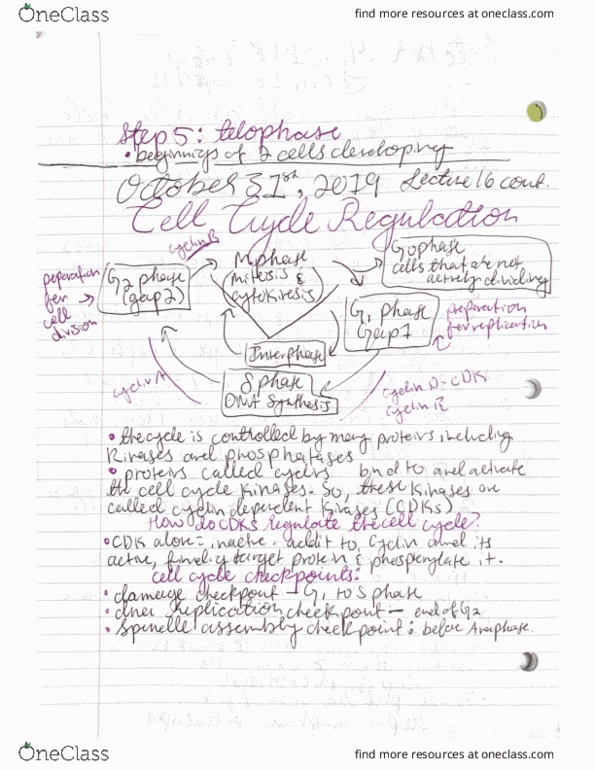 OneClass
find more resources at oneclass.com
Step 5: telophase
• beginnings of 2 cells developing
October 31st, 2019 Lecture 16 cont.
Cell Cycle Regulation
cyclin B
M phase
mitosis &
cytokinesis
G0 phase
cells that are not
actively dividing
preparation
for
cell
division
G2 phase
(gap 2)
G1 phase
Gap 1
preparation
for replication
Interphase
S phase
DNA Synthesis
cyclin A
cyclin D-CDK
cyclin E
• the cycle is controlled by many proteins including
kinases and phosphatases
• proteins called cyclins bind to and activate
the cell cycle kinases. So, these kinases are
called cyclin dependent kinases (CDKs)
How do CDKs regulate the cell cycle?
• CDK alone = inactive. add it to cyclin and its
active, find target protein & phosphorylate it.
cell cycle checkpoints:
• damage checkpoint - G1 to S phase
• replication checkpoint - end of G2
• spindle assembly checkpoint: before Anaphase.
OneClass
find more resources at oneclass.com